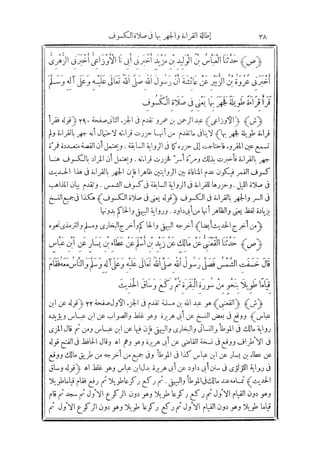 ٣٨ إطالة القراءة والجهر بها فى صلاة الكسوف
(ص) حَدَّثَنَا الْعَبَّاسُ بْنُ الْوَلِيدِ بْنِ مَزْيَدٍ أَخْبَرَنِى أَبِى نَا الْأَوْزَاعِىُّ أَخْبَرَنِى الزُّهْرِىُّ
أَخْبَرَنِى عُرْوَةُ بْنُ الزُّبَيْرِ عَنْ عَائِشَةَ أَنَّ رَسُولَ اللهِ صَلَّى اللهُ تَعَالَى عَلَيْهِ وَعَلَى آلِهِ وَسَلَّمَ
قَرَأَ قِرَاءَةً طَوِيلَةً فَجَهَرَ بِهَا يَعْنِى فِى صَلَاةِ الْكُسُوفِ
(ش) (الأوزاعى) عبد الرحمن بن عمرو تقدم فى الجزء الثانى صفحة ٢٩٠ (قوله فقرأ
قراءة طويلة فجهر بها) لاينافى ماتقدم من أنها حزرت قراءته لاحتمال أنه جهر بالقراءة ولم
تسمع عين المقروء فاحتاجت إلى حزره كما فى الرواية السابقة. ويحتمل أن القصة متعددة فمرّة
جهر بالقراءة فأخبرت بذلك ومرّة أسرّ فحزرت قراءته. ويحتمل أن المراد بالكسوف هنا
كسوف القمر فيكون عدم المنافاة بين الروايتين ظاهرا فإن الجهر بالقراءة فى هذا الحديث
فى صلاة الليل. وحزرها للقراءة فى الرواية السابقة فى كسوف الشمس. وتقدم بيان المذاهب
فى السر والجهر بالقراءة فى الكسوف (قوله يعنى فى صلاة الكسوف) هكذا فى جميع النسخ
بزيادة لفظ يعنى والظاهر أنها من أبى داود. ورواية البيهقى والحاكم بدونها
(من أخرج الحديث أيضا) أخرجه البيهقى والحاكم وأخرج البخارى ومسلم والترمذى نحوه
(ص) حَدَّثَنَا الْقَعْنَبِىُّ عَنْ مَالِكٍ عَنْ زَيْدِ بْنِ أَسْلَمَ عَنْ عَطَاءِ بْنِ يَسَارٍ عَنِ ابْنِ عَبَّاسٍ
قَالَ خَسَفَتِ الشَّمْسُ فَصَلَّى رَسُولُ اللهِ صَلَّى اللهُ تَعَالَى عَلَيْهِ وَعَلَى آلِهِ وَسَلَّمَ وَالنَّاسُ مَعَهُ فَقَامَ
قِيَامًا طَوِيلًا بِنَحْوٍ مِنْ سُورَةِ الْبَقَرَةِ ثُمَّ رَكَعَ وَسَاقَ الْحَدِيثَ
(ش) (القعنبى) هو عبد الله بن مسلمة تقدم فى الجزء الأول صفحة ٢٢ (قوله عن ابن
عباس) ووقع فى بعض النسخ عن أبى هريرة وهو غلط والصواب عن ابن عباس ويؤيده
رواية مالك فى الموطأ والنسائى والبخارى والبيهقى فإن فيها عن ابن عباس ومن ثم قال المزى
فى الأطراف ووقع فى نسخة القاضى عن أبى هريرة وهو وهم اه وقال الحافظ فى الفتح قوله
عن عطاء بن يسار عن ابن عباس كذا فى الموطأ وفى جميع من أخرجه من طريق مالك ووقع
فى رواية اللؤلؤى فى سنن أبى داود عن أبى هريرة بدل ابن عباس وهو غلط اه (قوله وساق
الحديث) تمامه عند مالك فى الموطأ والبيهقى. ثم ركع ركوعا طويلا ثم رفع فقام قياما طويلا
وهو دون القيام الأول ثم ركع ركوعا طويلا وهو دون الركوع الأول ثم سجد ثم قام
قياما طويلا وهو دون القيام الأول ثم ركع ركوعا طويلا وهو دون الركوع الأول ثم